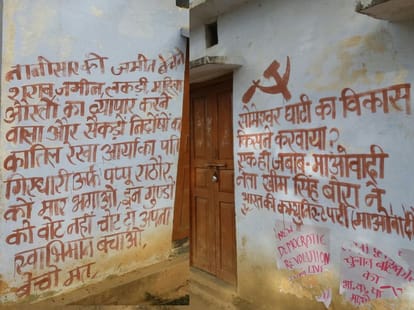 तानीसार को जमीन बेचने
शराब, जमीन, लकड़ी, मदिरा
औरतों का व्यापार करने
वाला और सैकड़ों निर्दोषों का
कातिल रेखा आर्या का पति
गिरधारी उर्फ पप्पू राठौर
को मार भगाओ, इन गुण्डों
को वोट नहीं चोट दो अपना
स्वाभिमान बचाओ,
बेचो मत,
सोमेश्वर घाटी का विकास
किसने करवाया?
एक ही जवाब-माओवादी
नेता खीम सिंह बोरा ने
भारत की कम्युनिस्ट पार्टी (माओवादी)
NEW
DEMOCRATIC
REVOLUTION
LIVE
चुनाव बहिष्कार
का